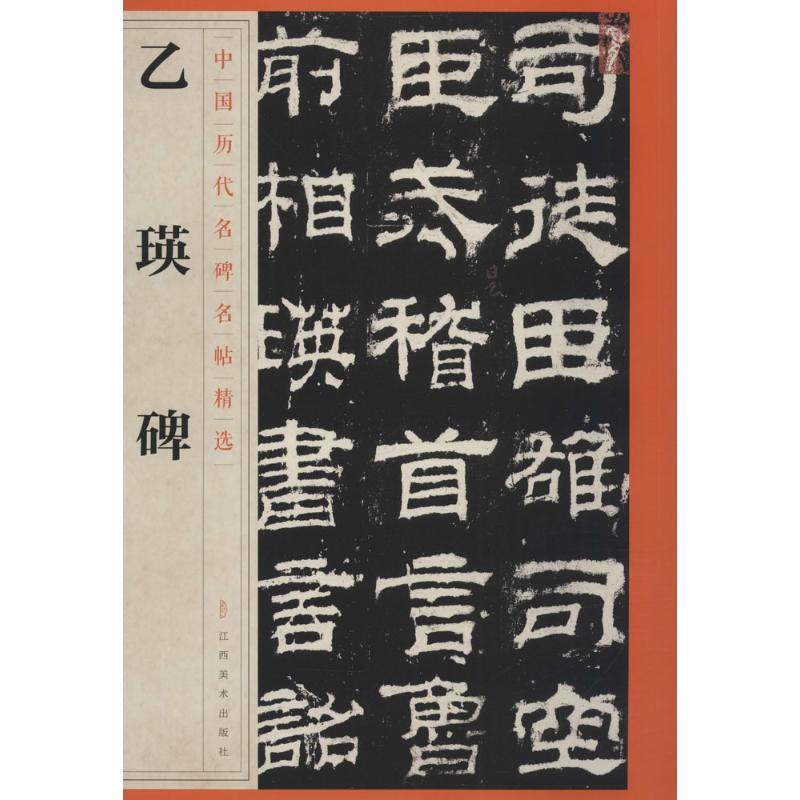 乙瑛碑
中国历代名碑名帖精选
江西美术出版社
司徒臣雄司空
臣戒稽首言魯
前相瑛書言詔